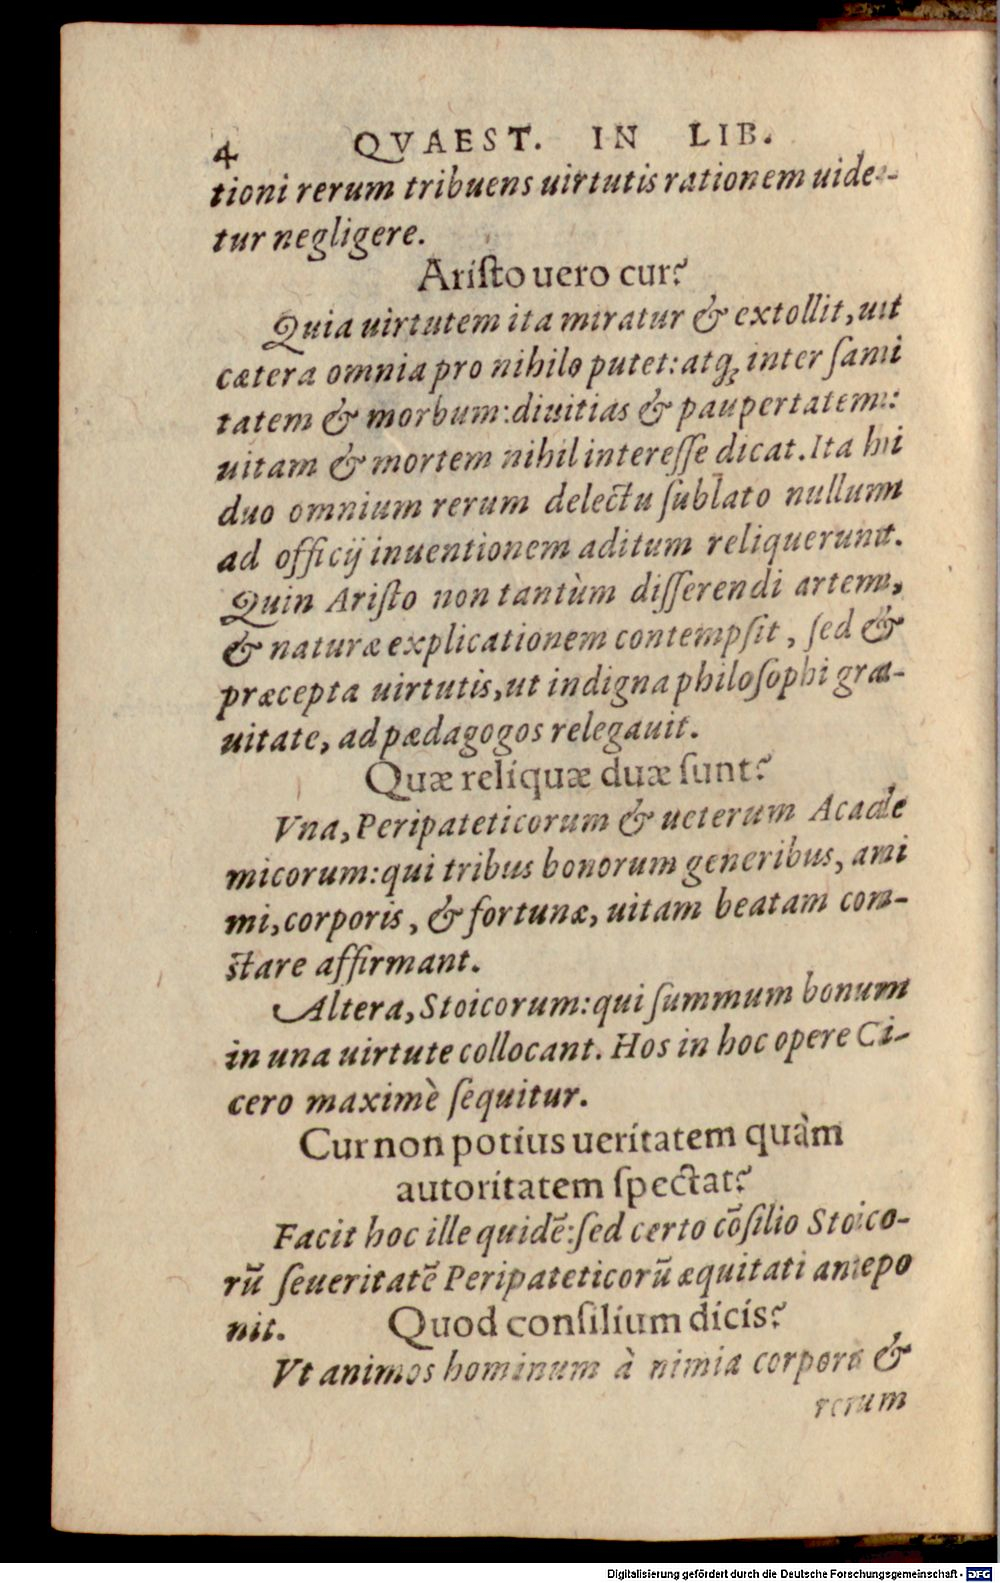 4 QVAEST. IN LIB.
tioni rerum tribuens uirtutis rationem uide-
tur negligere.
Ariſto uero cur?
Quia uirtutem ita miratur & extollit, uit
cætera omnia pro nihilo putet: atq; inter ſani
tatem & morbum: diuitias & paupertatem:
uitam & mortem nihil intereſſe dicat. Ita hi
duo omnium rerum delectu ſublato nullum
ad officij inuentionem aditum reliquerunt.
Quin Ariſto non tantùm diſſerendi artem,
& naturæ explicationem contempſit, ſed &
præcepta uirtutis, ut indigna philoſophi gra-
uitate, ad pædagogos relegauit.
Quæ reliquæ duæ ſunt?
Vna, Peripateticorum & ueterum Acade
micorum: qui tribus bonorum generibus, ani
mi, corporis, & fortunæ, uitam beatam con-
ſtare affirmant.
Altera, Stoicorum: qui ſummum bonum
in una uirtute collocant. Hos in hoc opere Ci-
cero maximè ſequitur.
Cur non potius ueritatem quàm
autoritatem ſpectat?
Facit hoc ille quidē: ſed certo cōſilio Stoico-
rū ſeueritatē Peripateticorū æquitati antepo
nit. Quod conſilium dicis?
Vt animos hominum à nimia corporis &
rerum
Digitalisierung gefördert durch die Deutsche Forschungsgemeinschaft - DFG